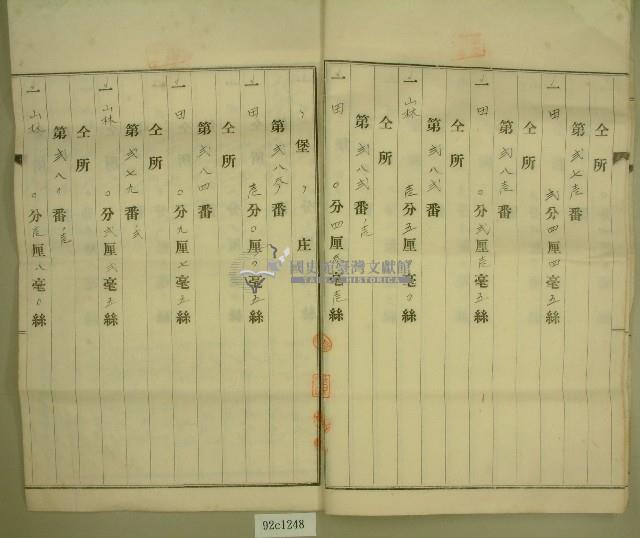 仝所
第貳七壱番
一 田 貳分四厘四毫五絲
仝所
第貳八壱番
一 田 〇分貳厘壱毫五絲
仝所
第貳八貳番
一 山林 壱分五厘 毫〇絲
仝所
第貳八貳番ノ壱
一 田 〇分四厘 毫壱絲
〻堡〻庄
第貳八參番
一 田 壱分〇厘〇毫五絲
仝所
第貳八四番
一 田 〇分九厘七毫五絲
仝所
第貳七九番ノ貳
一 山林 〇分貳厘貳毫五絲
仝所
第貳八〇番ノ壱
一 山林 〇分壱厘八毫〇絲
國史館臺灣文獻館
TAIWAN HISTORICA
92c1248